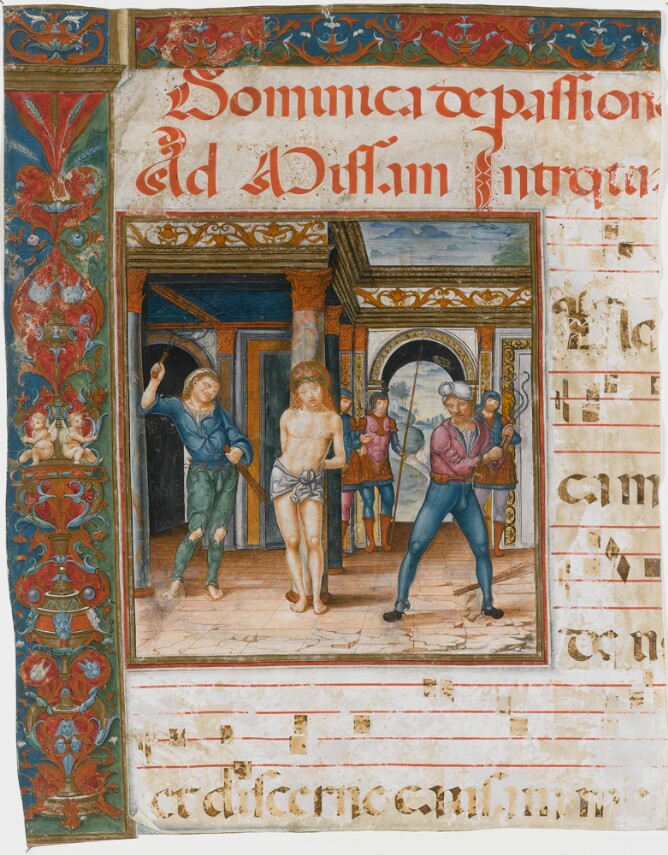 Dominica de passion
Ad Missam Introitu
ca m
de u
et discerne causam m